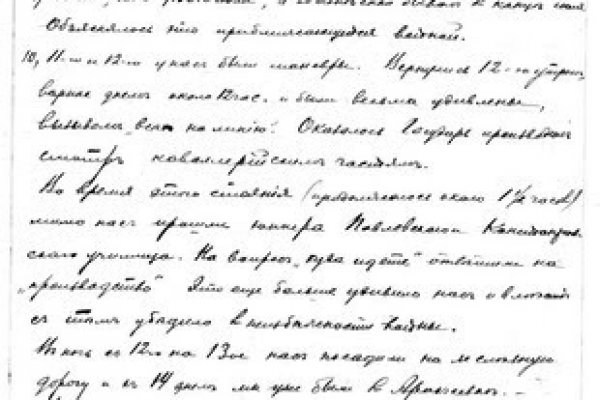 Объяснялось это приближающейся войной.
10, 11-го и 12-го у нас были маневры. Вернулись 12-го утром,
вернее днем около 12 час. и были весьма удивлены,
вызовом „всех на линию". Оказалось Государь производит
смотръ кавалерийскимъ частямъ.
Во время этого стояния (продолжалось около 1½ часов)
мимо нас прошли юнкера Павловского
училища. На вопрос „куда идете" ответили на
„производство" Это еще больше удивило нас и
с темъ убедило в неизбежности войны.
Въ ночь с 12го на 13ое нас посадили на железную
дорогу и къ 14 днемъ мы уже были в